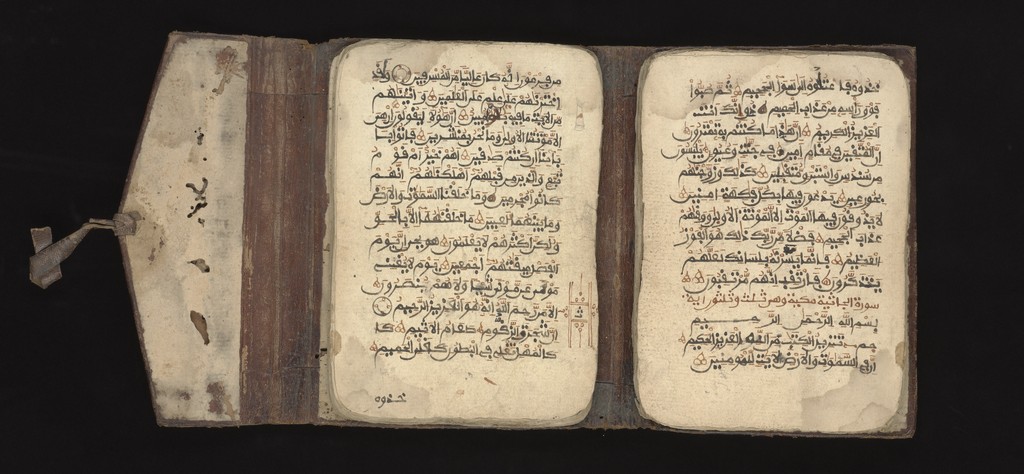 من فرعون انه كان عاليا من المسرفين ولقد
اخترنهم على علم على العلمين وءاتينهم
من الايت ما فيه بلؤا مبين ان هؤلا ليقولون ان هي
الا موتتنا الاولى وما نحن بمنشرين فاتوا
بابائنا ان كنتم صدقين اهم خير ام قوم
تبع والذين من قبلهم اهلكنهم انهم
كانوا مجرمين وما خلقنا السموت والارض
وما بينهما لعبين ما خلقنهما الا بالحق
ولكن اكثرهم لا يعلمون ان يوم
الفصل ميقتهم اجمعين يوم لا يغني
مولى عن مولى شيئا ولا هم ينصرون
الا من رحم الله انه هو العزيز الرحيم
ان شجرت الزقوم طعام الاثيم كا
كالمهل تغلي في البطون كغلي الحميم
خذوه
خذوه فاعتلوه الى سواء الجحيم ثم صبوا
فوق راسه من عذاب الحميم ذق انك انت
العزيز الكريم ان هذا ما كنتم به تمترون
ان المتقين في مقام امين في جنت وعيون يلبسون
من سندس واستبرق متقبلين كذلك وزوجنهم
بحور عين يدعون فيها بكل فكهة امنين
لا يذوقون فيها الموت الا الموتة الاولى ووقيهم
عذاب الجحيم فضلا من ربك ذلك هو الفوز
العظيم فانما يسرنه بلسانك لعلهم
يتذكرون فارتقب انهم مرتقبون
سورة الجاثية مكية وهي ثلث وثلثون اية
بسم الله الرحمن الرحيم
حم تنزيل الكتب من الله العزيز الحكيم
ان في السموت والارض لايت للمومنين